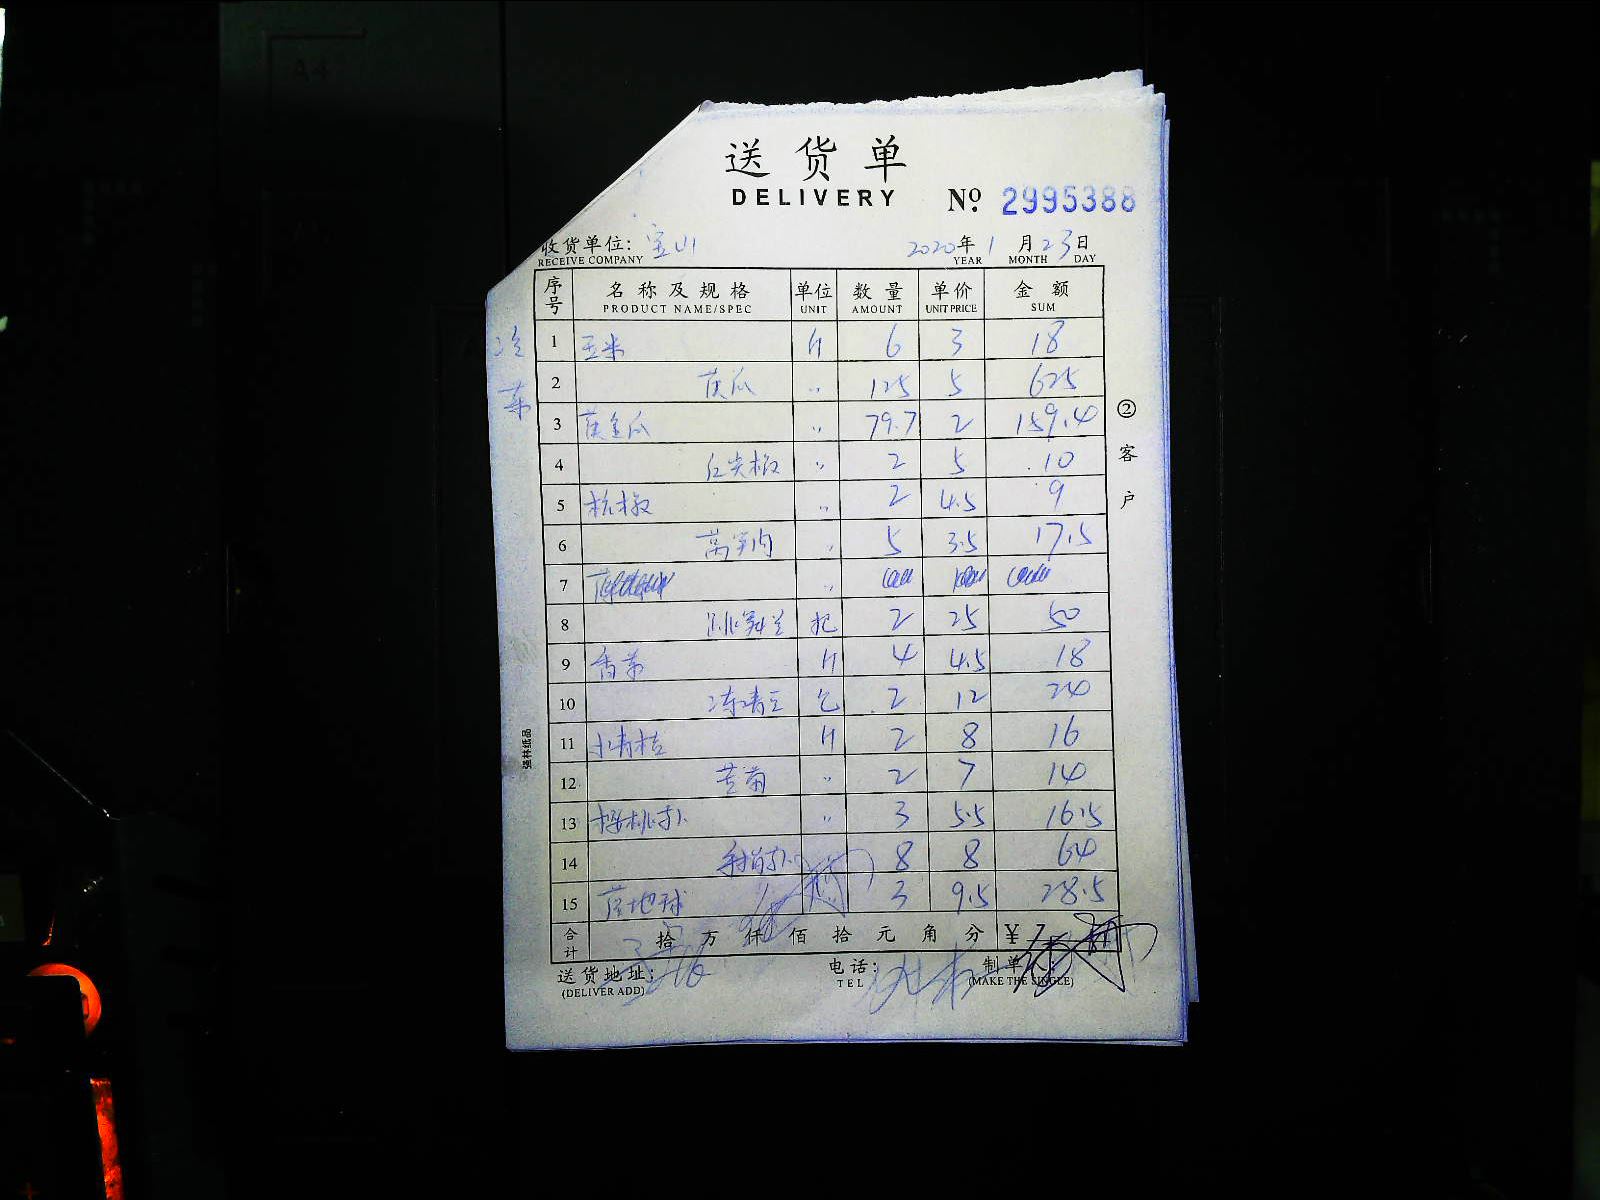 送货单
DELIVERY № 2995388
收货单位：宝山 2020年1月23日
RECEIVE COMPANY YEAR MONTH DAY
序号 名称及规格 单位 数量 单价 金额
PRODUCT NAME/SPEC UNIT AMOUNT UNIT PRICE SUM
冷菜
1 玉米 斤 6 3 18
2 黄瓜 〃 125 5 625
3 黄金瓜 〃 79.7 2 159.4
4 红尖椒 〃 2 5 10
5 杭椒 〃 2 4.5 9
6 莴笋肉 〃 5 3.5 17.5
7 〃
8 跳舞兰 把 2 25 50
9 香芹 斤 4 4.5 18
10 冻青豆 包 2 12 24
11 小青桔 斤 2 8 16
12 苦菊 〃 2 7 14
13 樱桃卜 〃 3 5.5 16.5
14 8 8 64
15 3 9.5 28.5
合计 拾万仟佰拾元角分 ¥
送货地址： 电话： 制单人：
(DELIVER ADD) TEL (MAKE THE SINGLE)
②客户
强林纸品